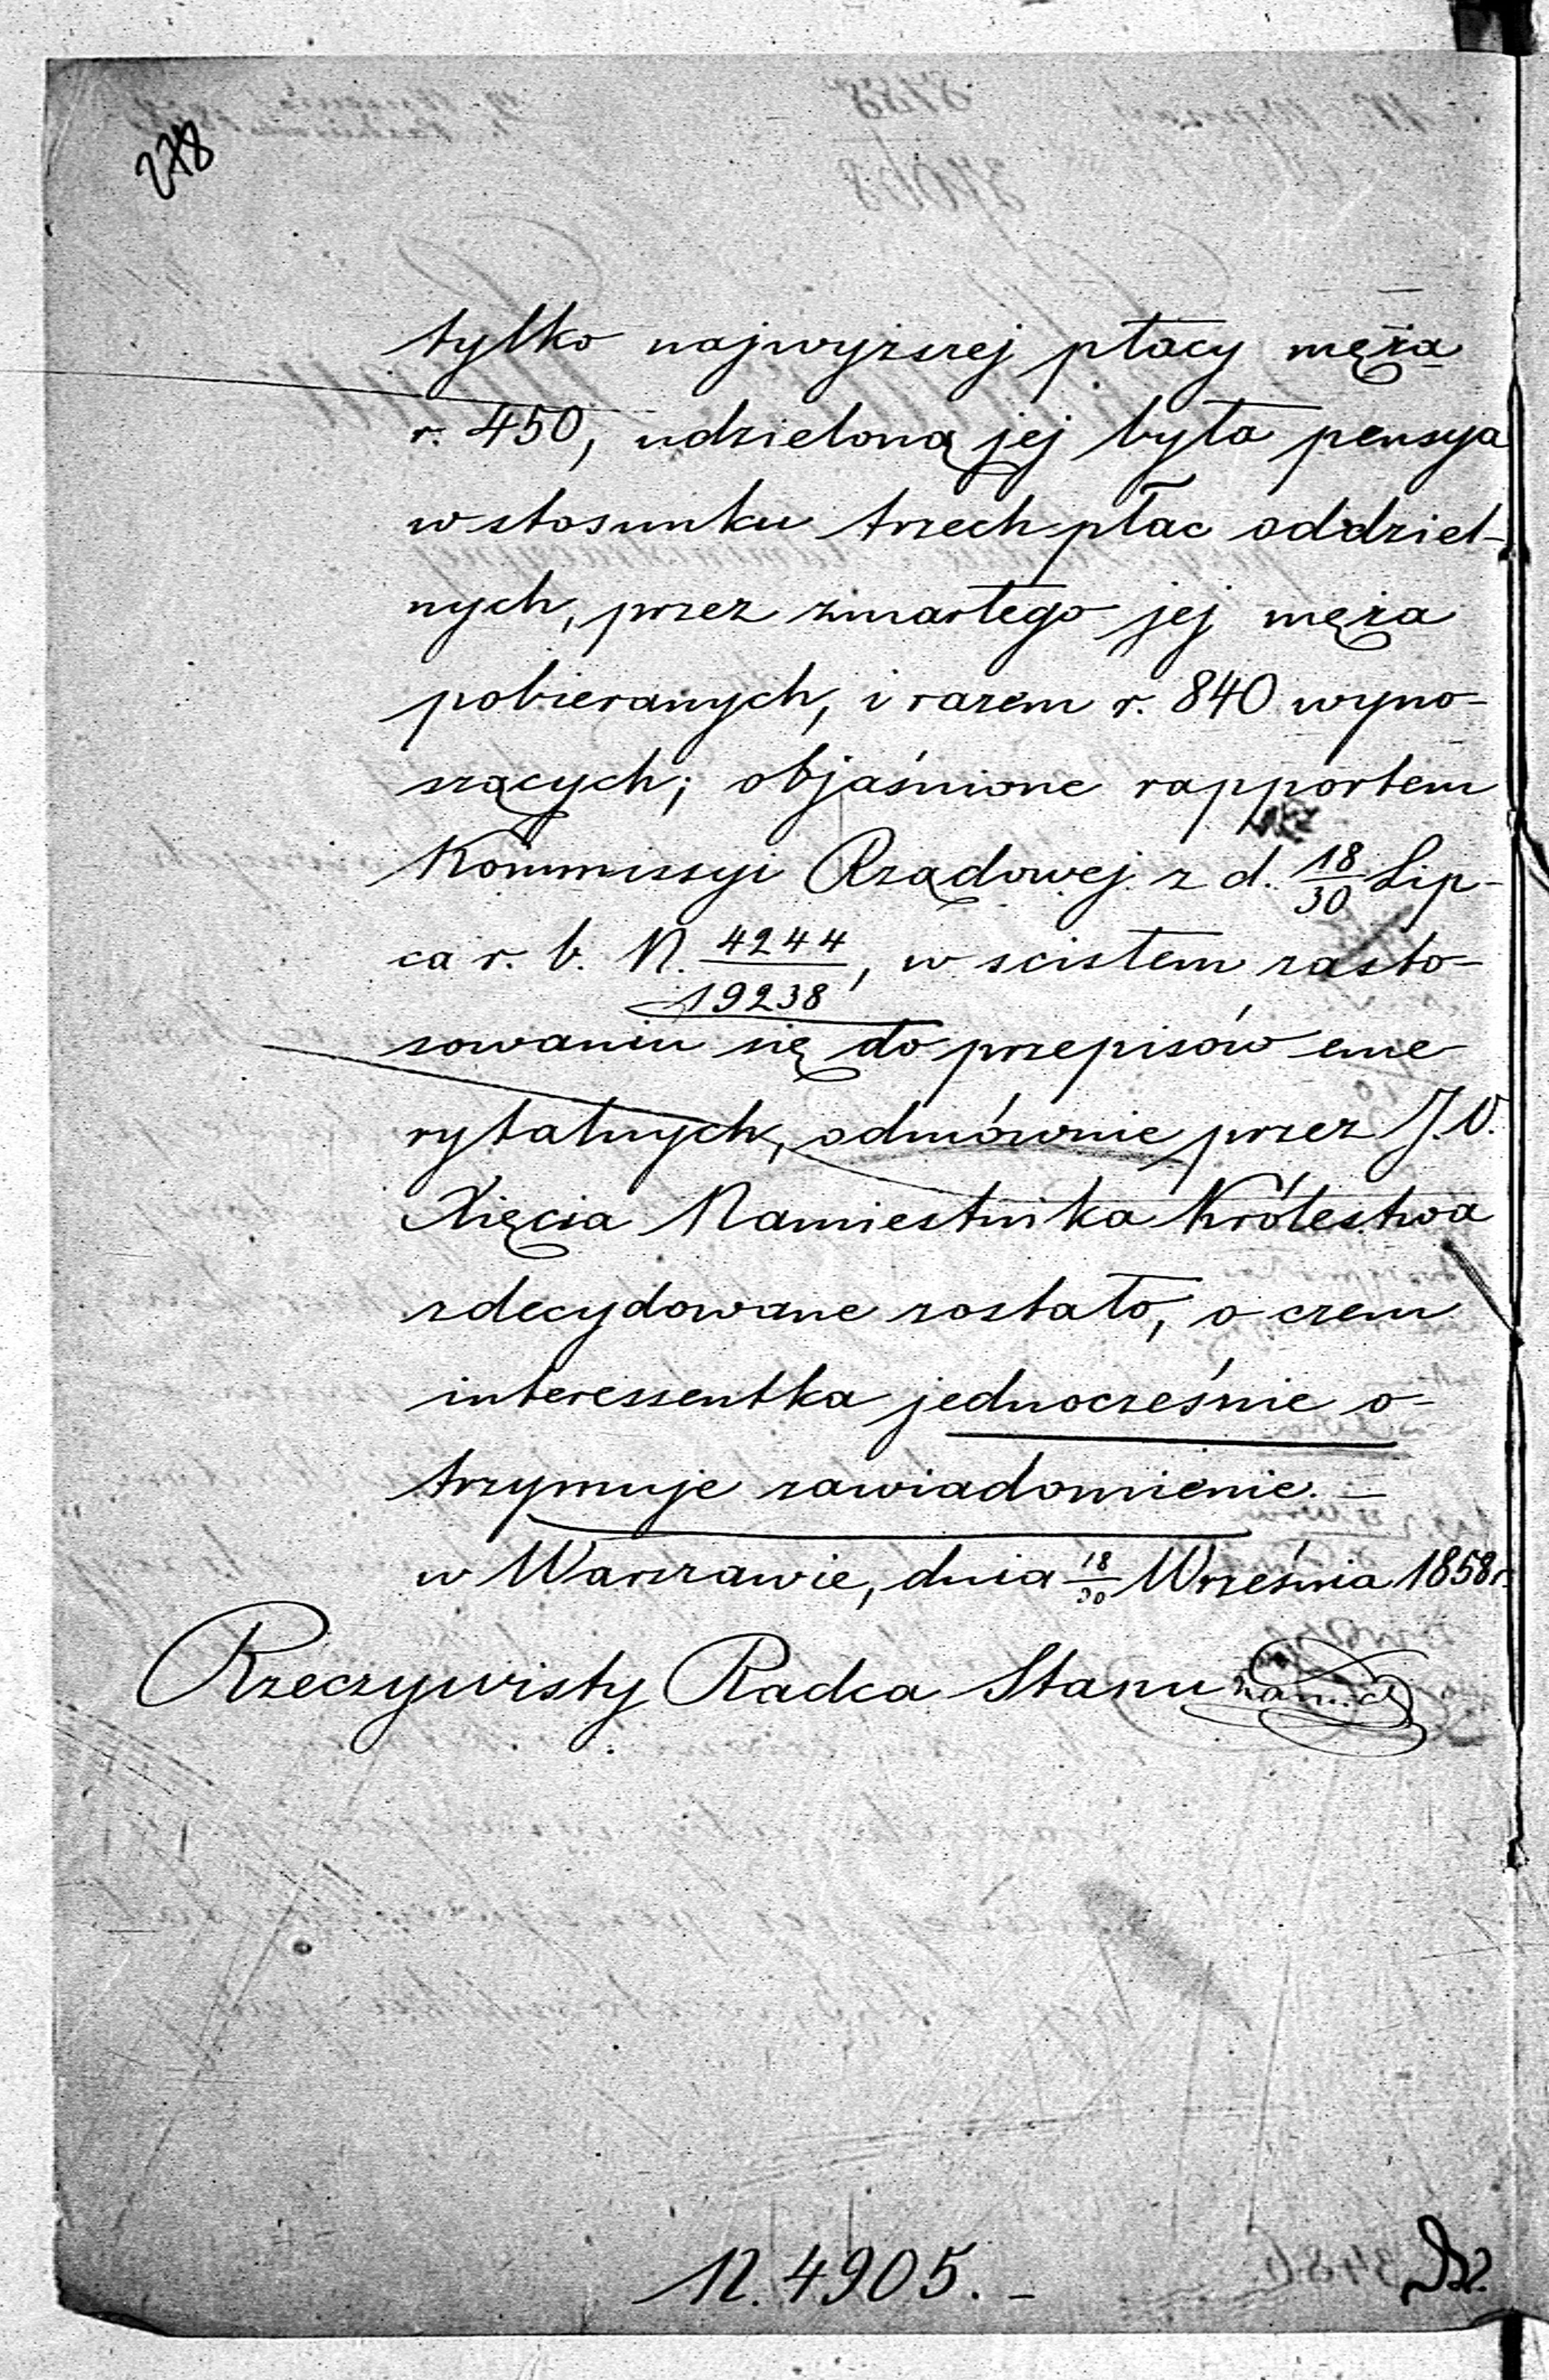 278
tylko najwyższej płacy męża
r. 450, udzieloną jej była pensya
w stosunku trzech płac oddziel-
nych, przez zmarłego jej męża
pobieranych, i razem r. 840 wyno-
szących; objaśnione rapportem
Kommissyi Rządowej z d. 18/30 Lip-
ca r. b. N. 4244/19238, w scisłem zasto-
sowaniu się do przepisów eme-
rytalnych, odmównie przez J. O.
Xięcia Namiestnika Królestwa
zdecydowane zostało, o czem
interessentka jednocześnie o-
trzymuje zawiadomienie. —
w Warszawie, dnia 18/30 Września 1858 r.
Rzeczywisty Radca Stanu
N. 4905. -